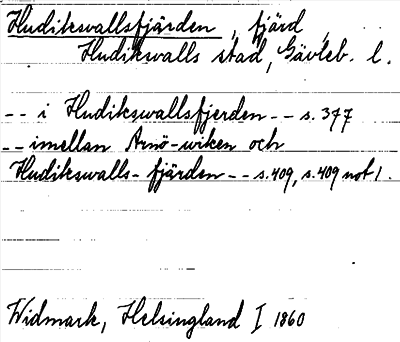 Hudiksvallsfjärden, fjärd,
Hudiksvalls stad, Gävleb. l.
-- i Hudikswallsfjerden -- s. 377
-- imellan Arnö-wiken och
Hudikswalls-fjärden -- s. 409, s. 409 not 1.
Widmark, Helsingland I 1860